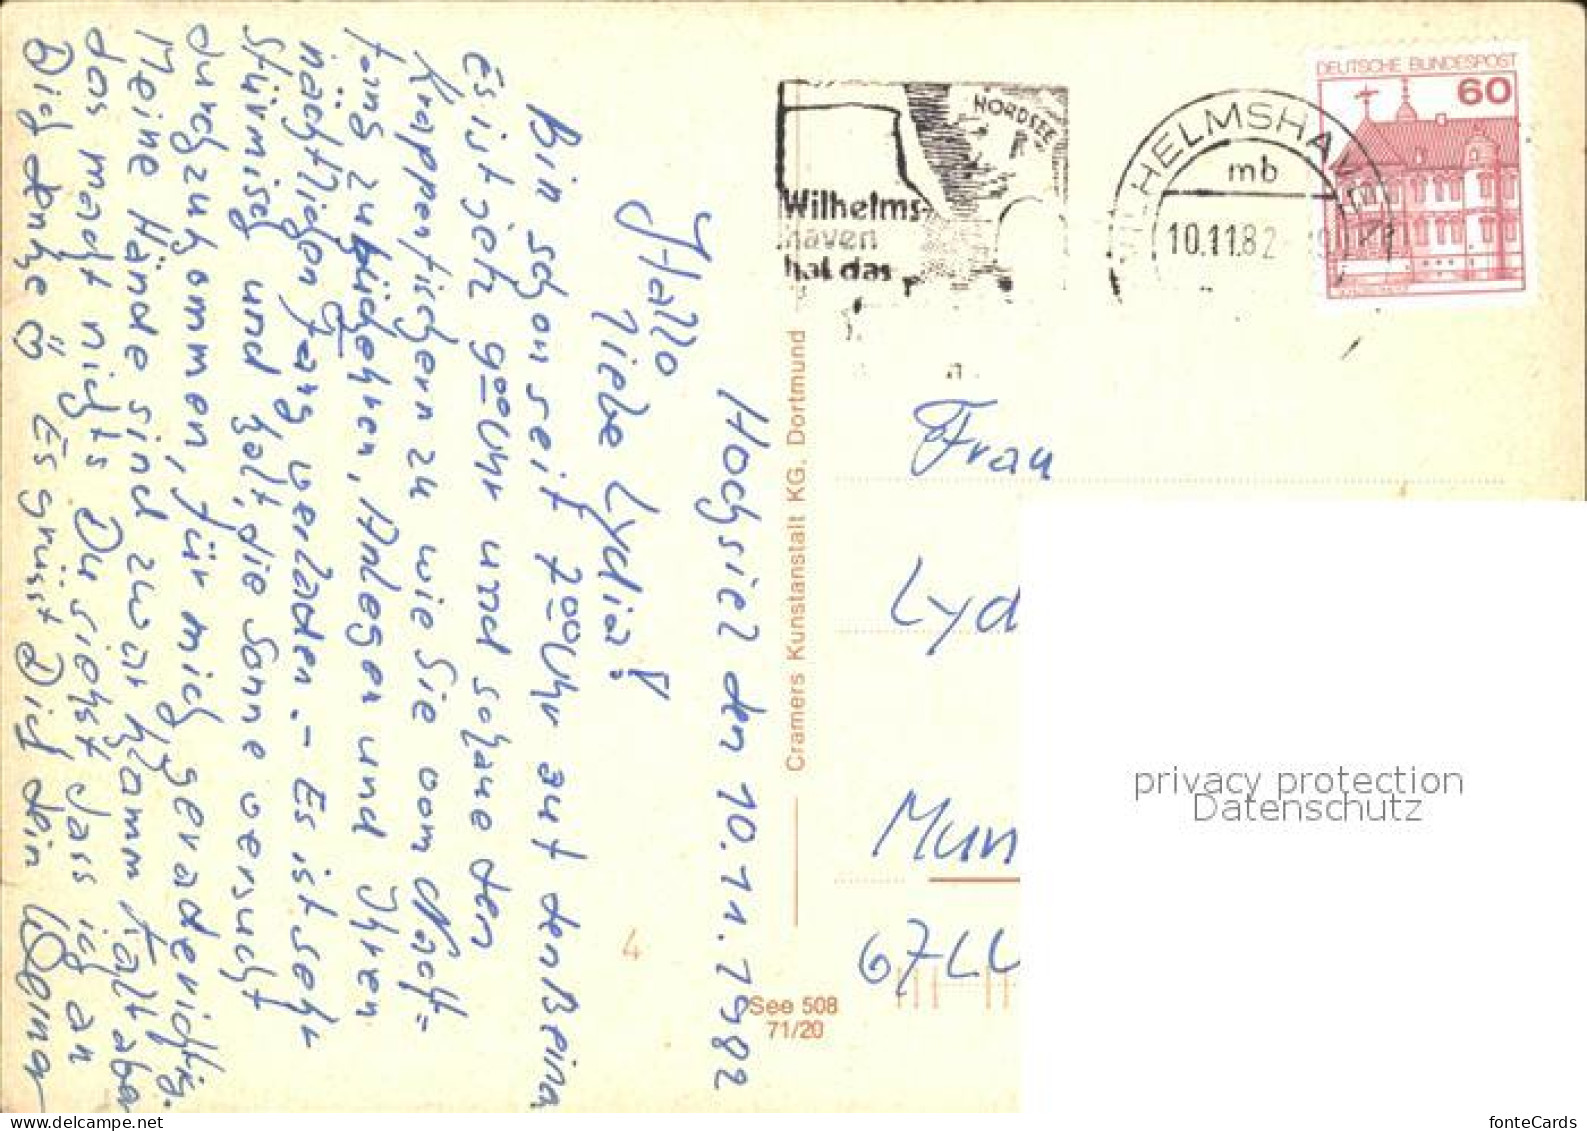 Hochsiel den 10.11.1982
Hallo
liebe Lydia!
Bin schon seit 7ºº Uhr auf den Beinen
Es ist jetz 9ºº Uhr und schaue den
Krappenfischern zu wie Sie vom Nacht=
fang zurückehren, Anlegen und Ihren
nächtlichen Fang verladen. – Es ist sehr
Stürmisch und kalt, die Sonne versucht
durchzukommen, für mich gerade richtig.
Meine Hände sind zwar klamm kalt aber
das macht nichts Du siehst dass ich an
Dich denke Es grüsst Dich dein Werner
Cramers Kunstanstalt KG, Dortmund
4
See 508
71/20
NORDSEE
Wilhelms-
haven
hat das
WILHELMSHAVEN
mb
10.11.82
DEUTSCHE BUNDESPOST
60
Frau
Lyd
Mun
67LL
privacy protection
Datenschutz
fonteCards